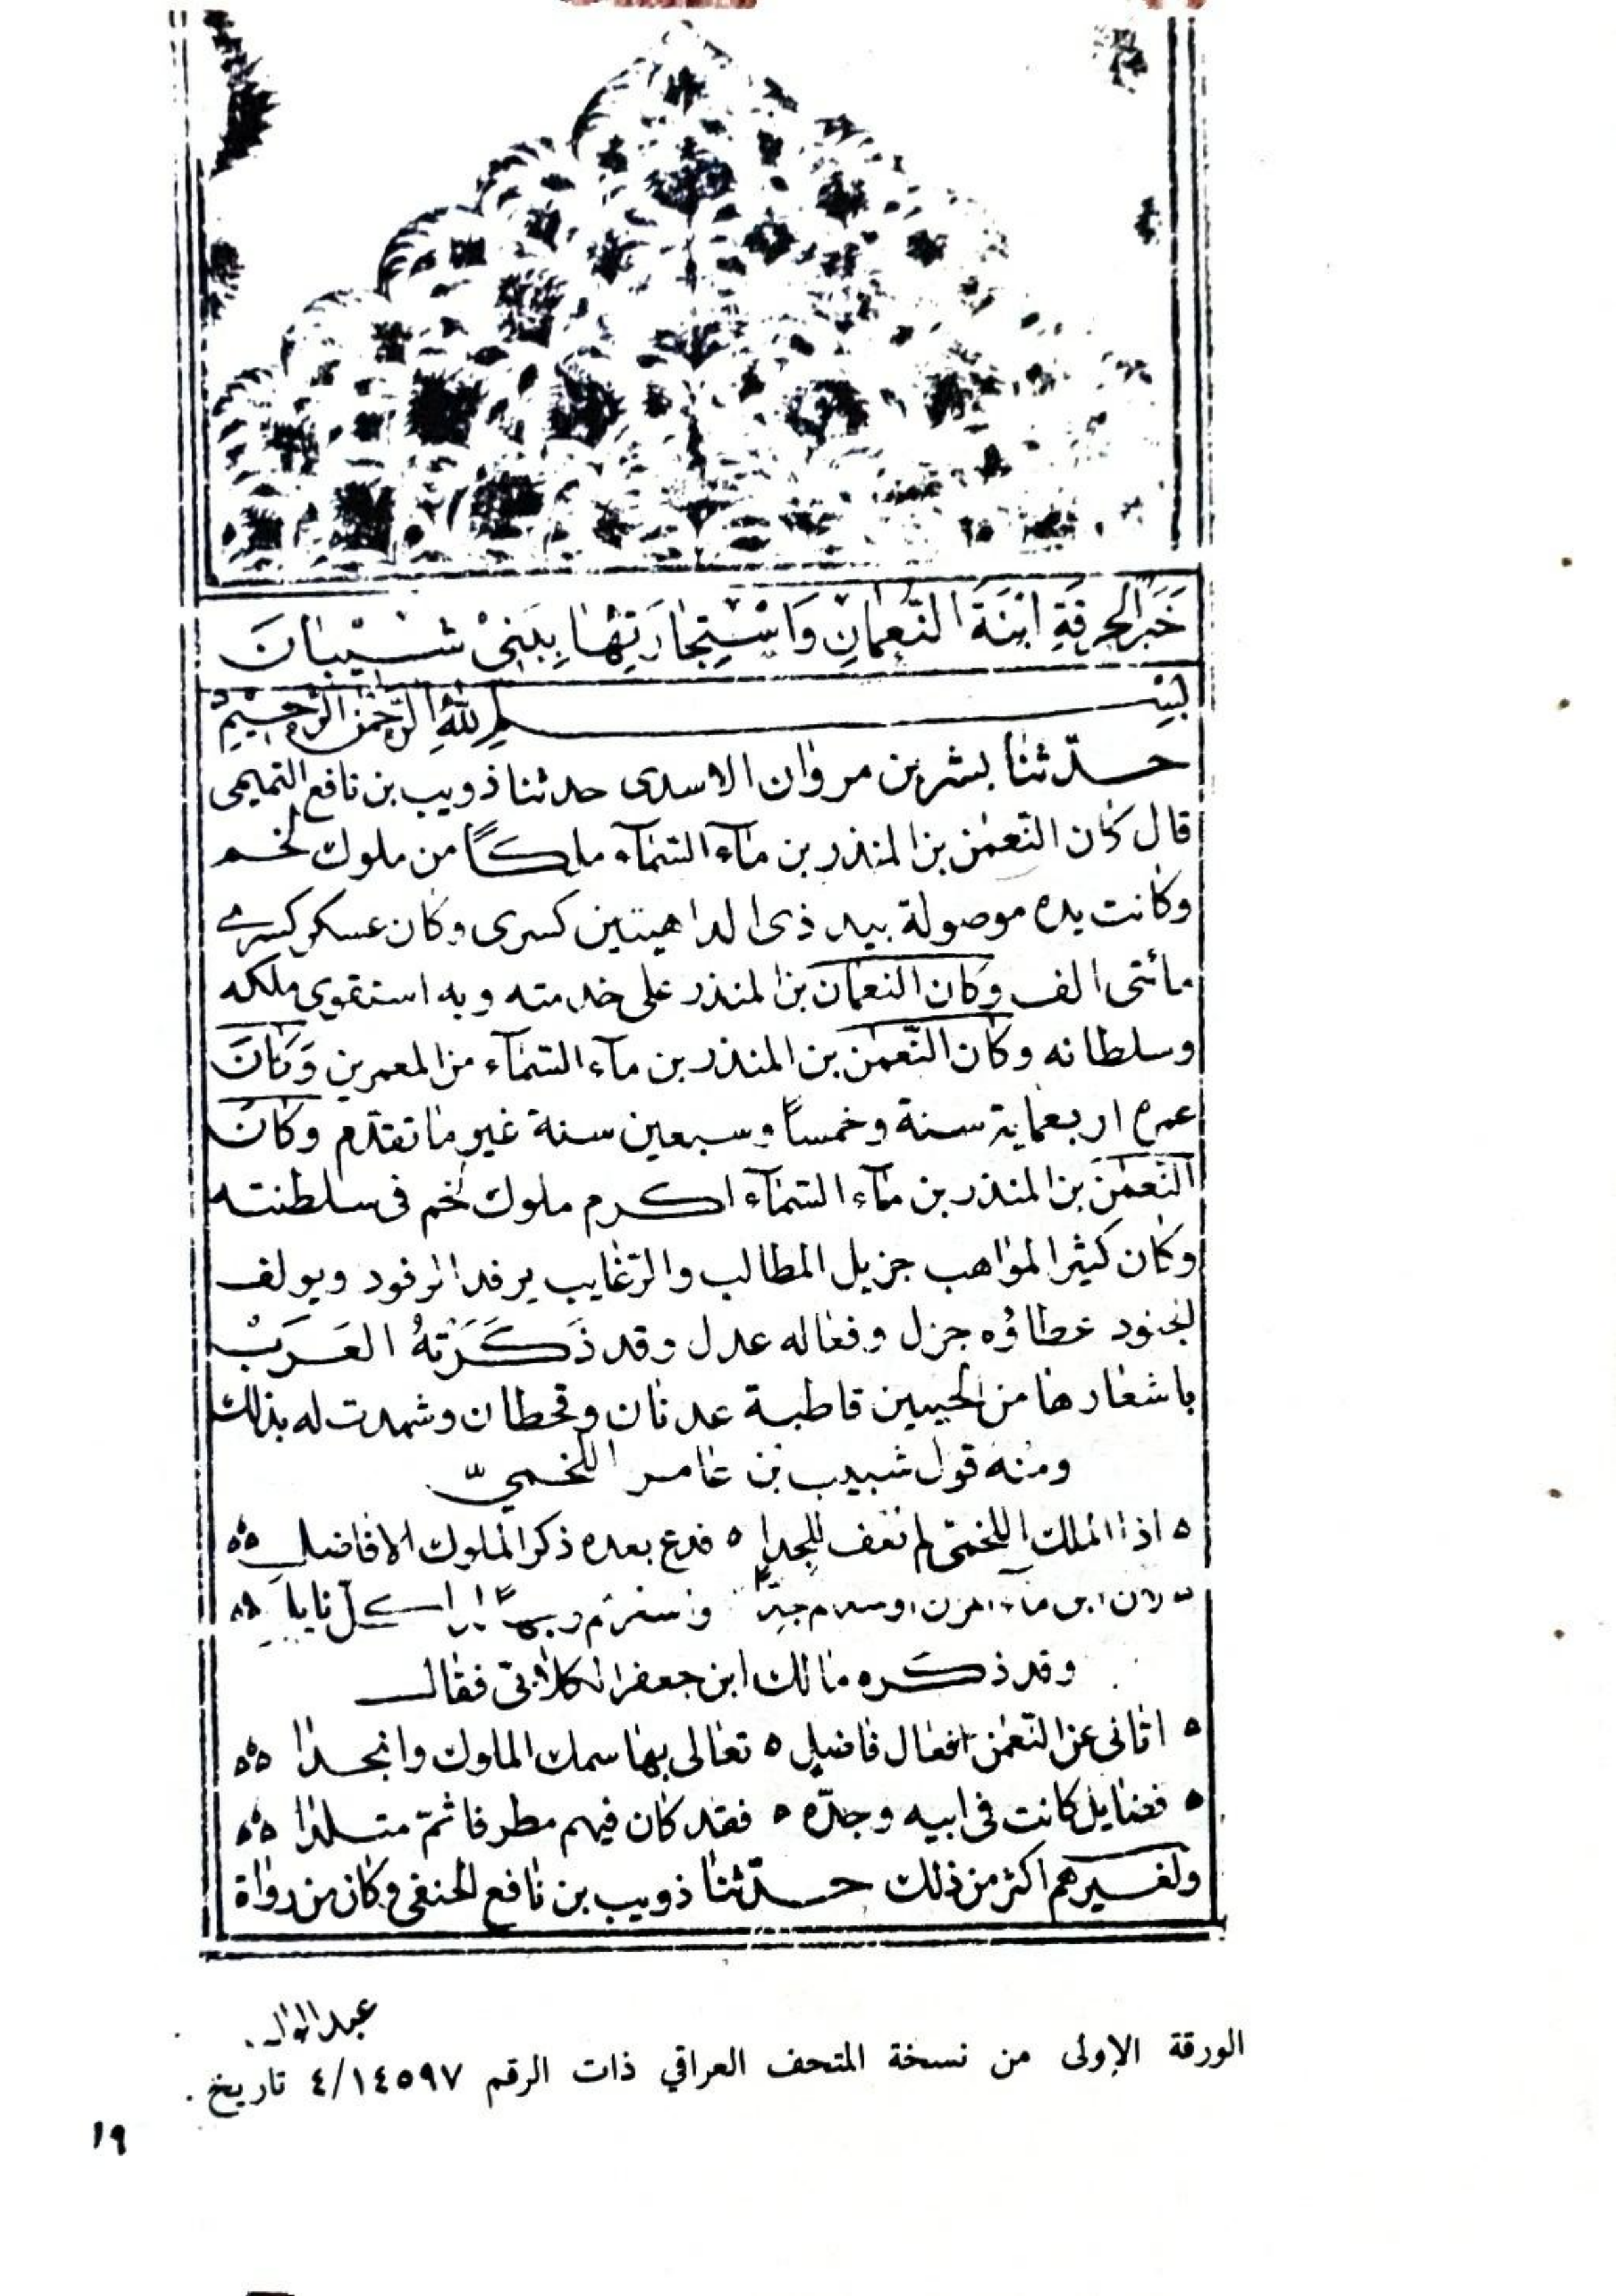 خَبَرُ الحُرقَةِ ابْنَةَ النُّعمَانِ وَاسْتِجَارَتِهَا بِبَنِيْ شَيْبَانَ
بسم الله الرحمن الرحيم
حدّثنا بشر بن مروان الاسدى حدثنا ذويب بن نافع التميمى
قال كان النّعمٰن بن المنذر بن مآء السّمآء ملكًا من ملوك لخم
وكانت يده موصولة بيد ذى الداهيتين كسرى وكان عسكر كسرى
مائتى الف وكان النعمان بن المنذر على خدمته وبه استقوى ملكه
وسلطانه وكان النّعمٰن بن المنذر بن مآء السّمآء من المعمرين وَكَانَ
عمره اربعماية سنة وخمسًا وسبعين سنة غير ما تقدّم وكان
النّعمٰن بن المنذر بن مآء السّمآء اكرم ملوك لخم فى سلطنته
وكان كثير المواهب جزيل المطالب والرّغايب يرفد الرفود ويولف
الجنود عطاؤه جزل وفعاله عدل وقد ذَكَرَتْهُ العَرَبْ
باشعارها من الحيين قاطبة عدنان وقحطان وشهدت له بذلك
ومنه قول شبيب بن عامر اللخمىّ
ه اذا الملك اللخمىّ لم تقف للجدا ه فدع بعده ذكر الملوك الافاضل
وقد ذكره مالك ابن جعفر الكلابىّ فقال
ه اتانى عن النّعمٰن افعال فاضل ه تعالى بها سمك الملوك وانجدا
ه فضايل كانت فى ابيه وجدّه ه فقد كان فيهم مطرفا ثمّ متلدا
ولغيرهم اكثر من ذلك حدّثنا ذويب بن نافع الحنفى وكان من رواة
الورقة الأولى من نسخة المتحف العراقي ذات الرقم ٤/١٤٥٩٧ تاريخ .
١٩